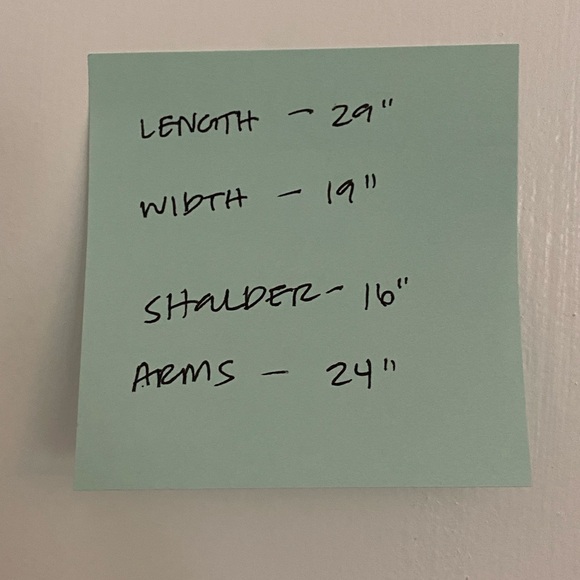 LENGTH - 29"
WIDTH - 19"
SHOULDER - 16"
ARMS - 24"